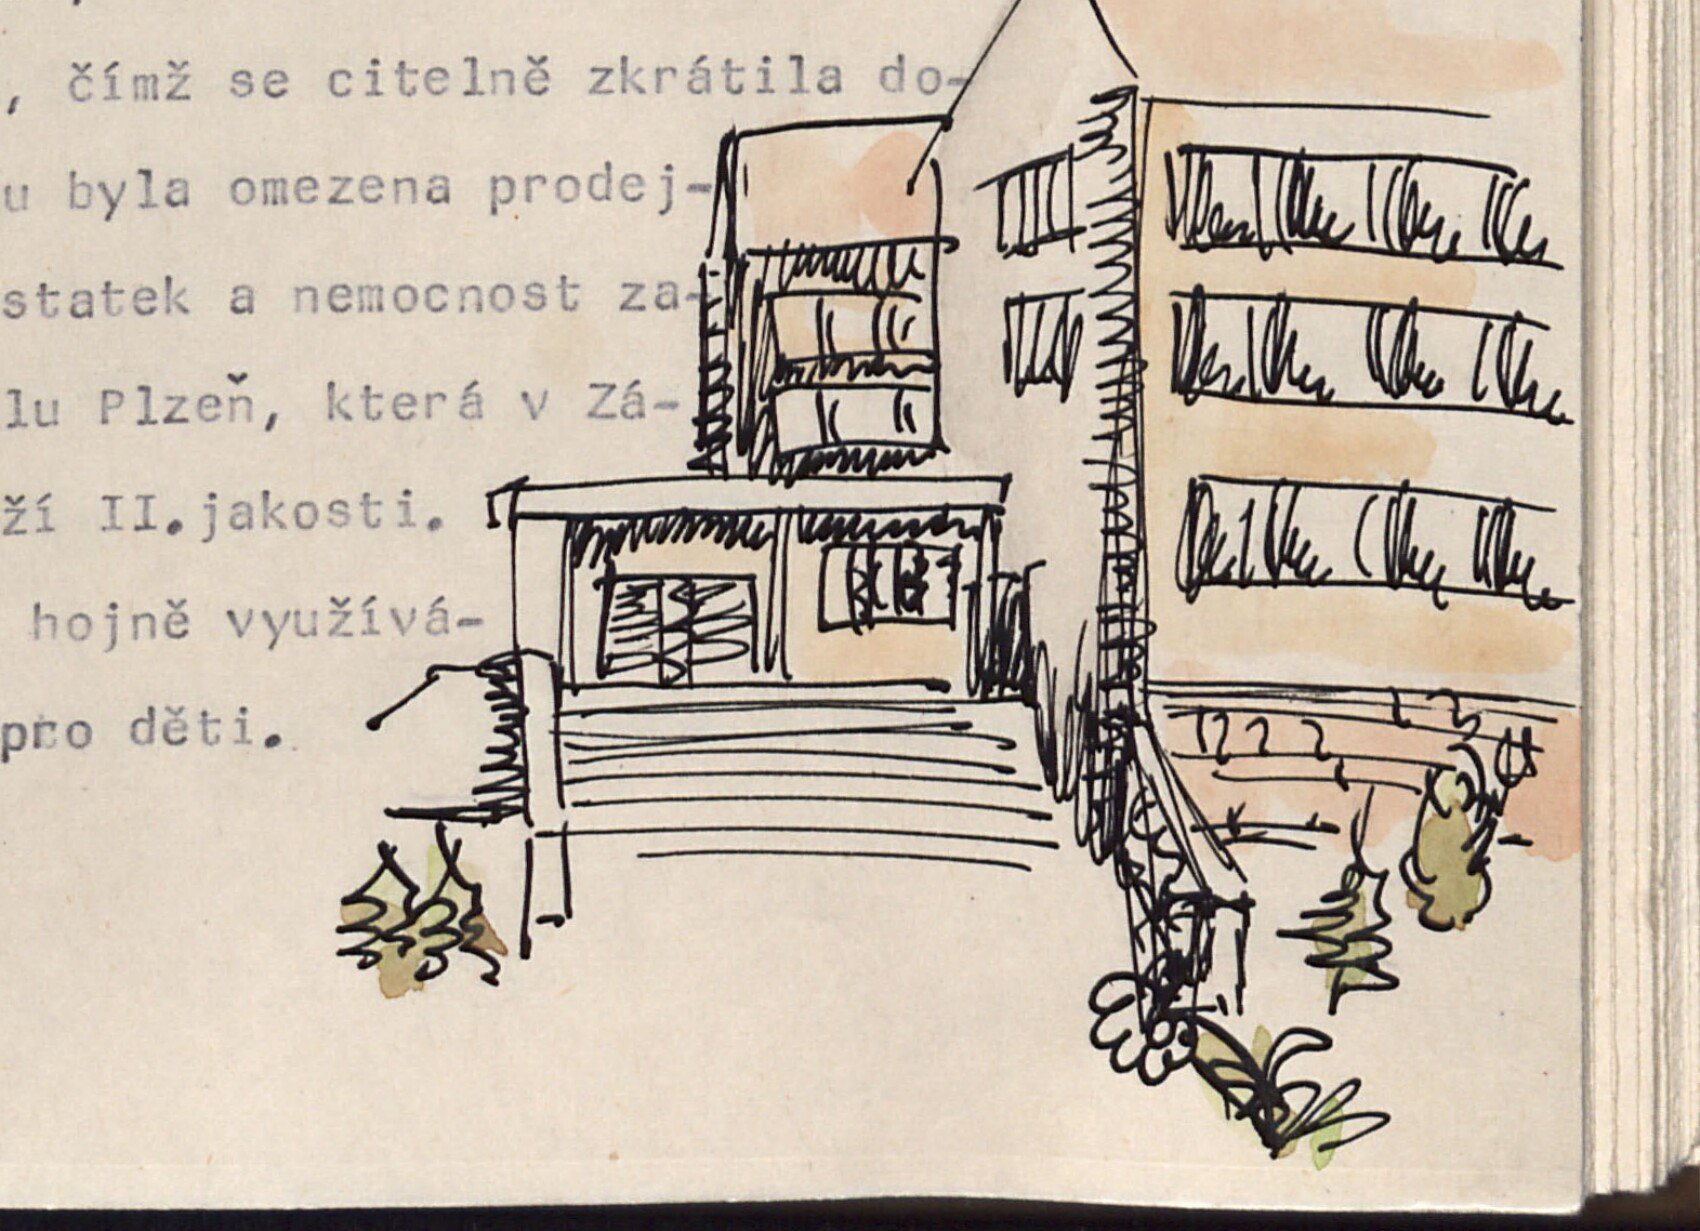 , čímž se citelně zkrátila do-
u byla omezena prodej-
statek a nemocnost za-
lu Plzeň, která v Zá-
ží II.jakosti.
hojně využívá-
pro děti.